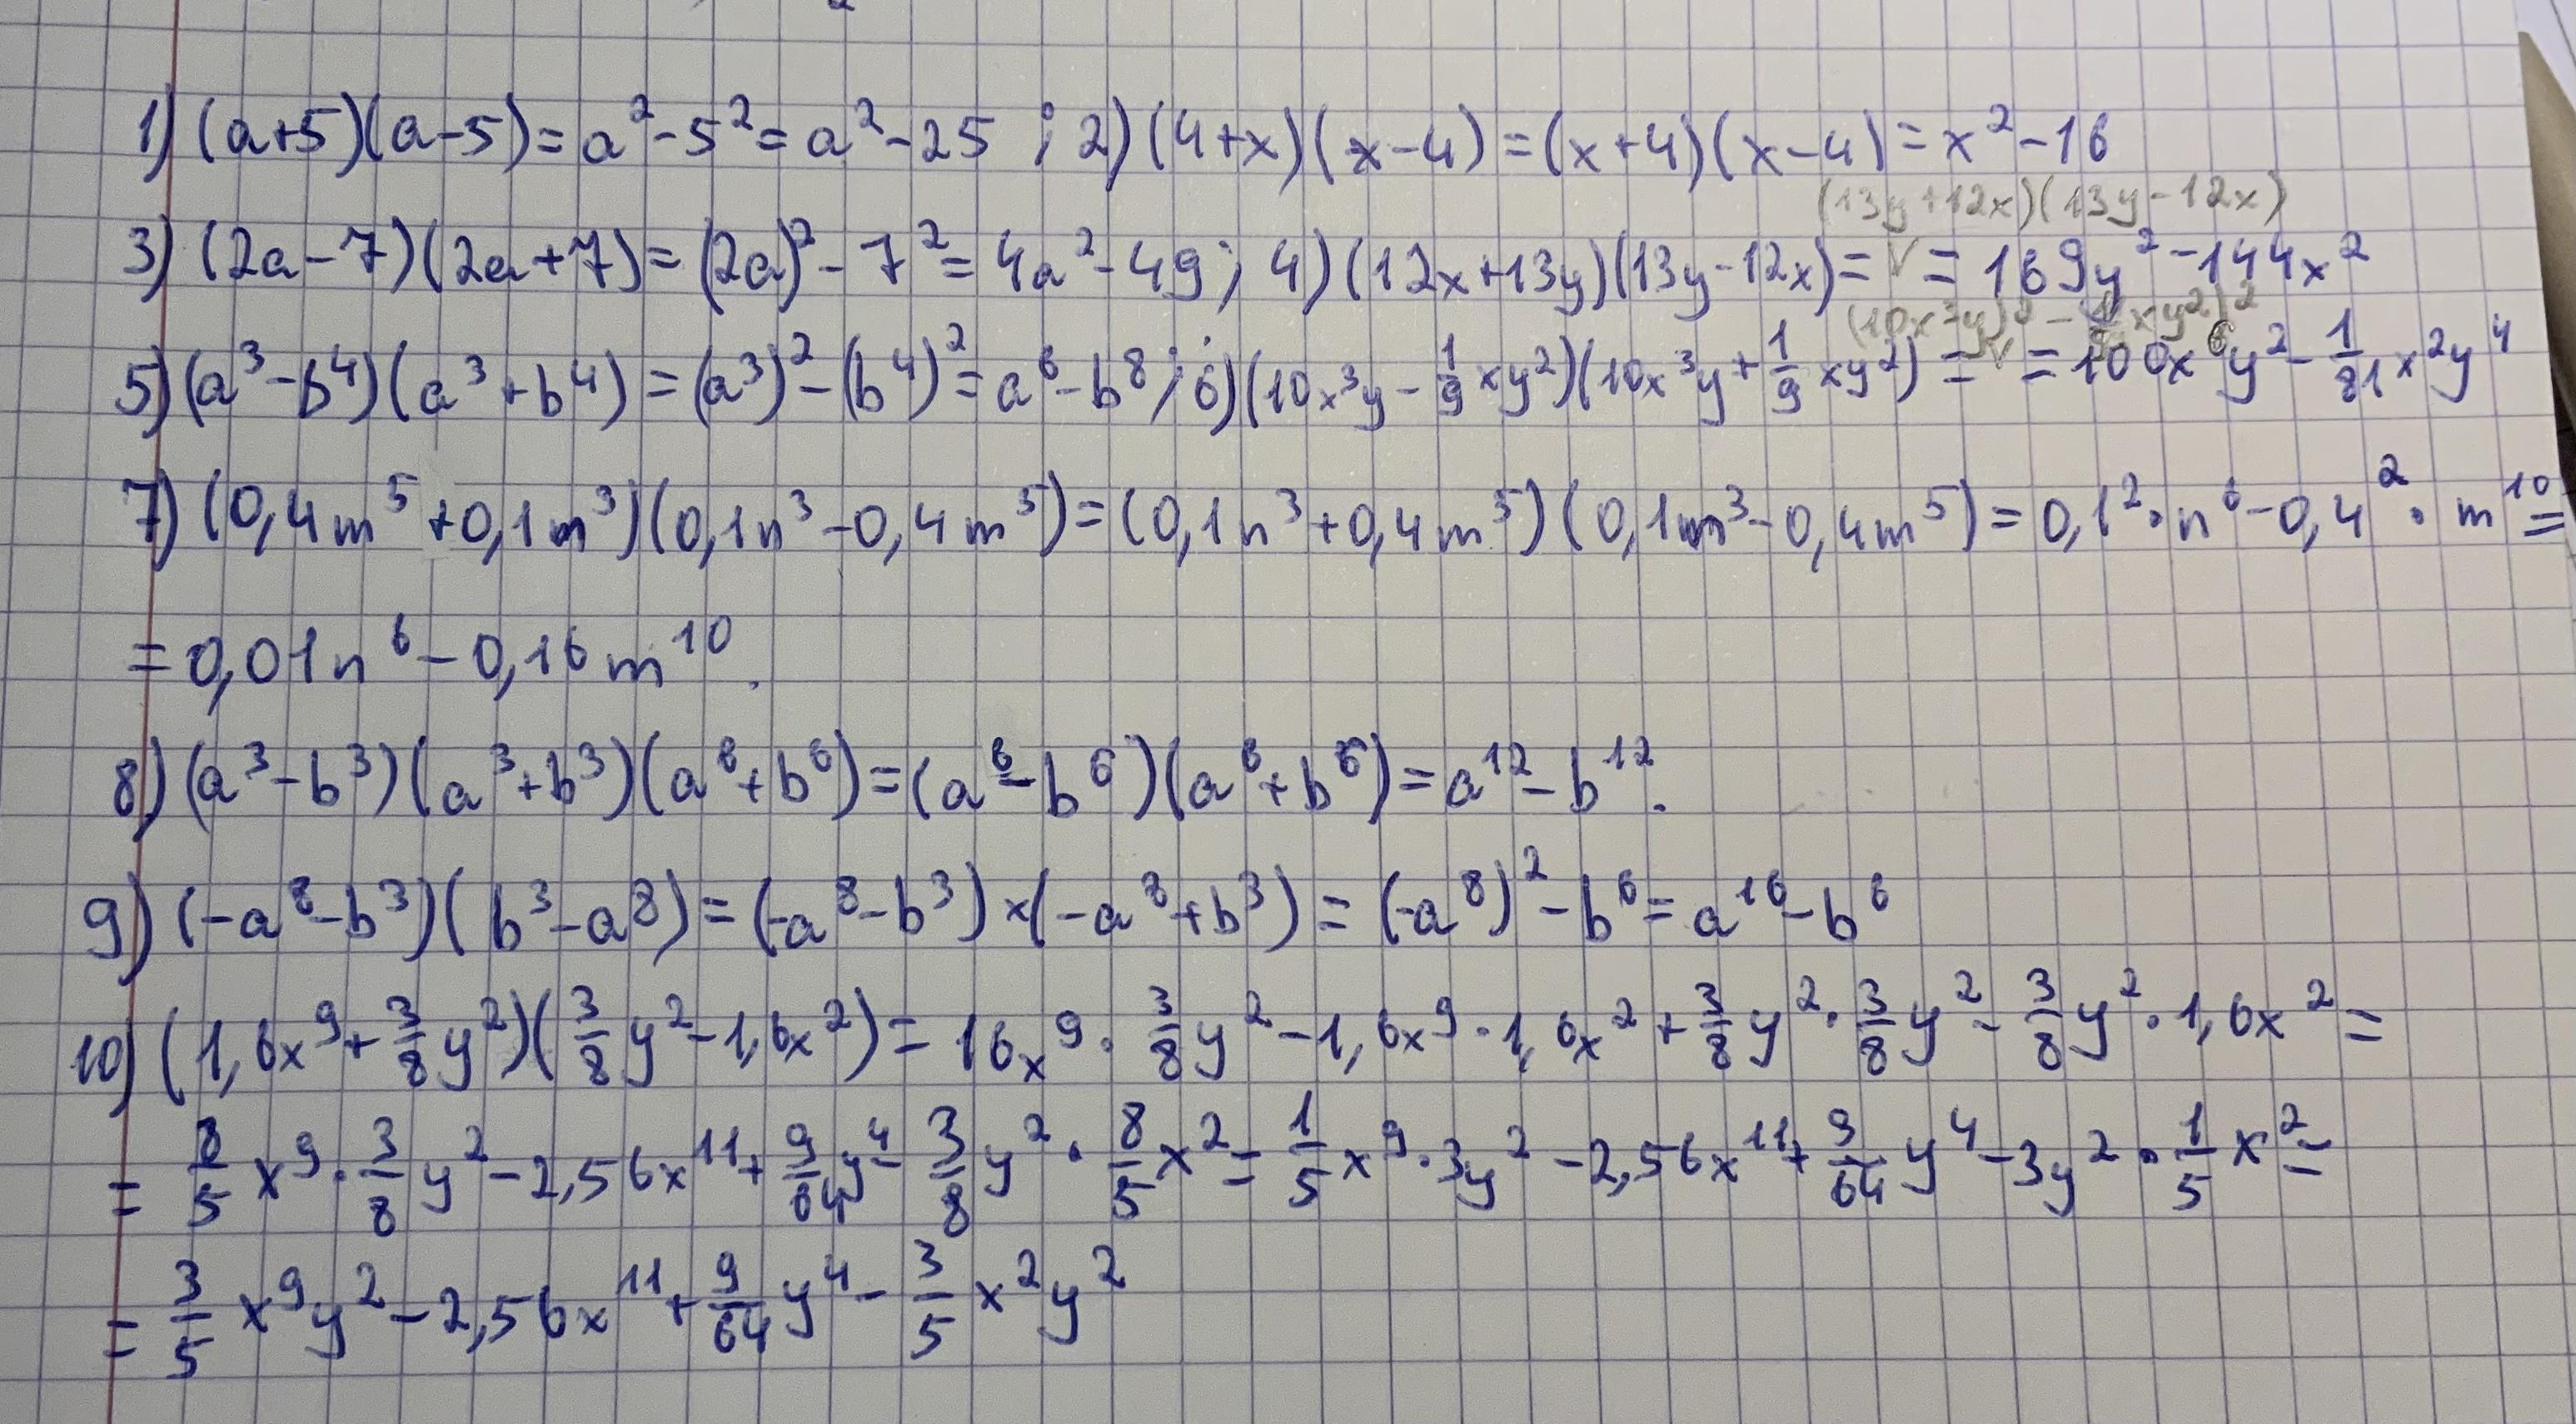 1) (a+5)(a-5)=a²-5²=a²-25 ; 2) (4+x)(x-4)=(x+4)(x-4)=x²-16
(13y+12x)(13y-12x)
3) (2a-7)(2a+7)=(2a)²-7²=4a²-49; 4) (12x+13y)(13y-12x)= √ =169y²-144x²
(10x³y)²-(1/9xy²)²
5) (a³-b⁴)(a³+b⁴)=(a³)²-(b⁴)²=a⁶-b⁸; 6) (10x³y-1/9xy²)(10x³y+1/9xy²)= √ =100x⁶y²-1/81x²y⁴
7) (0,4m⁵+0,1m³)(0,1n³-0,4m⁵)=(0,1n³+0,4m⁵)(0,1m³-0,4m⁵)=0,1²·n⁶-0,4²·m¹⁰=
=0,01n⁶-0,16m¹⁰.
8) (a³-b³)(a³+b³)(a⁶+b⁶)=(a⁶-b⁶)(a⁶+b⁶)=a¹²-b¹².
9) (-a⁸-b³)(b³-a⁸)=(-a⁸-b³)×(-a⁸+b³)=(-a⁸)²-b⁶=a¹⁶-b⁶
10) (1,6x⁹+3/8y²)(3/8y²-1,6x²)=16x⁹·3/8y²-1,6x⁹·1,6x²+3/8y²·3/8y²-3/8y²·1,6x²=
=8/5x⁹·3/8y²-2,56x¹¹+9/64y⁴-3/8y²·8/5x²=1/5x⁹·3y²-2,56x¹¹+9/64y⁴-3y²·1/5x²=
=3/5x⁹y²-2,56x¹¹+9/64y⁴-3/5x²y²